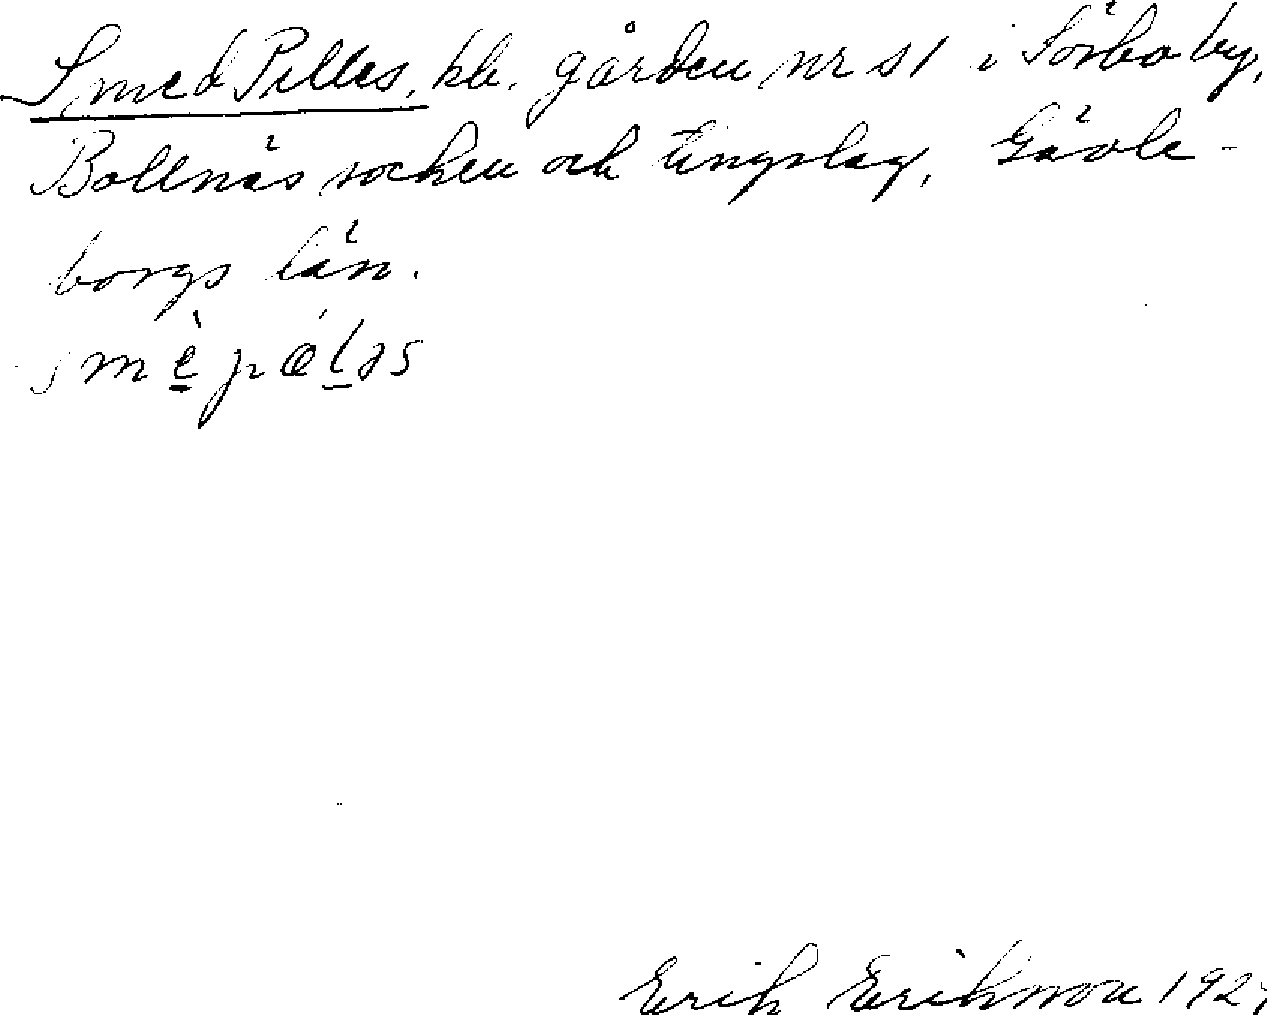 Smed Pelles, kh. gården nr 51 i Sörbo by,
Bollnäs socken och tingslag, Gävle-
borgs län.
smèpǽləs
Erik Erikson